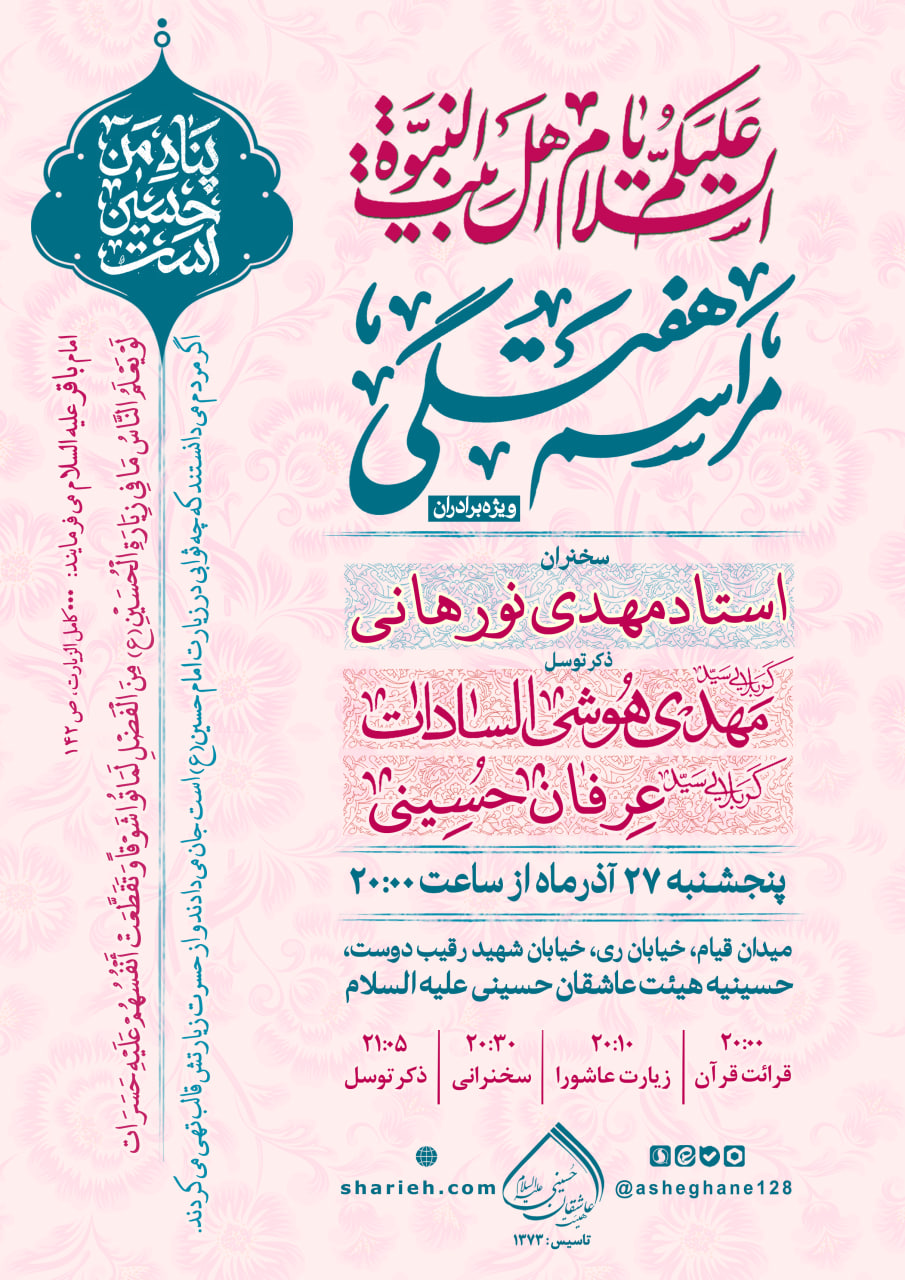 السلام علیکم یا اهل بیت النبوة
مراسم هفتگی
ویژه برادران
سخنران
استاد مهدی نورهانی
ذکر توسل
کربلایی سیّد مهدی هوشی السادات
کربلایی سیّد عرفان حسینی
پنجشنبه ۲۷ آذرماه از ساعت ۲۰:۰۰
میدان قیام، خیابان ری، خیابان شهید رقیب دوست،
حسینیه هیئت عاشقان حسینی علیه السلام
۲۰:۰۰ قرائت قرآن
۲۰:۱۰ زیارت عاشورا
۲۰:۳۰ سخنرانی
۲۱:۰۵ ذکر توسل
@asheghane128
هیئت عاشقان حسینی علیه السلام
تاسیس: ۱۳۷۳
sharieh.com
پناه من
حسین
است
امام باقر علیه السلام می فرمایند: ••• کامل الزیارت، ص ۱۴۲
لَوْ یَعْلَمُ النَّاسُ مَا فِی زِیَارَةِ الْحُسَیْنِ (ع) مِنَ الْفَضْلِ لَمَاتُوا شَوْقاً وَ تَقَطَّعَتْ أَنْفُسُهُمْ عَلَیْهِ حَسَرَات
اگر مردم می دانستند که چه ثوابی در زیارت امام حسین (ع) است جان می دادند و از حسرت زیارتش قالب تهی می کردند.